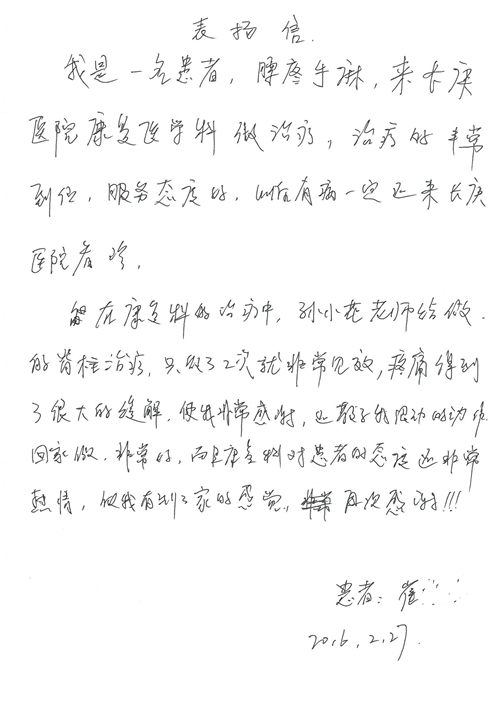 表扬信.
我是一名患者，腰疼手麻，来长庚
医院康复医学科做治疗，治疗的非常
到位，服务态度好，以后有病一定还来长庚
医院看诊.
在康复科的治疗中，孙小花老师给做
的脊柱治疗，只做了2次就非常见效，疼痛得到
了很大的缓解，使我非常感谢，还教了我活动的动作
回家做，非常好，而且康复科对患者的态度还非常
热情，使我有到了家的感觉，再次感谢!!!
患者：崔
2016.2.27.